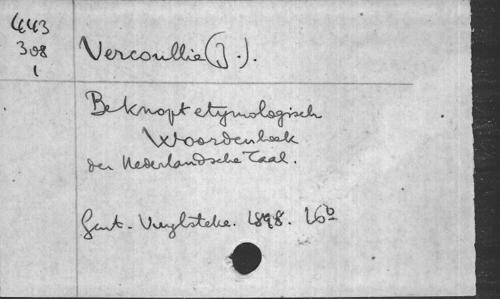 443
308
1
Vercoullie (J.).
Beknopt etymologisch
Woordenboek
der Nederlandsche Taal.
Gent - Vuylsteke. 1898. 16º